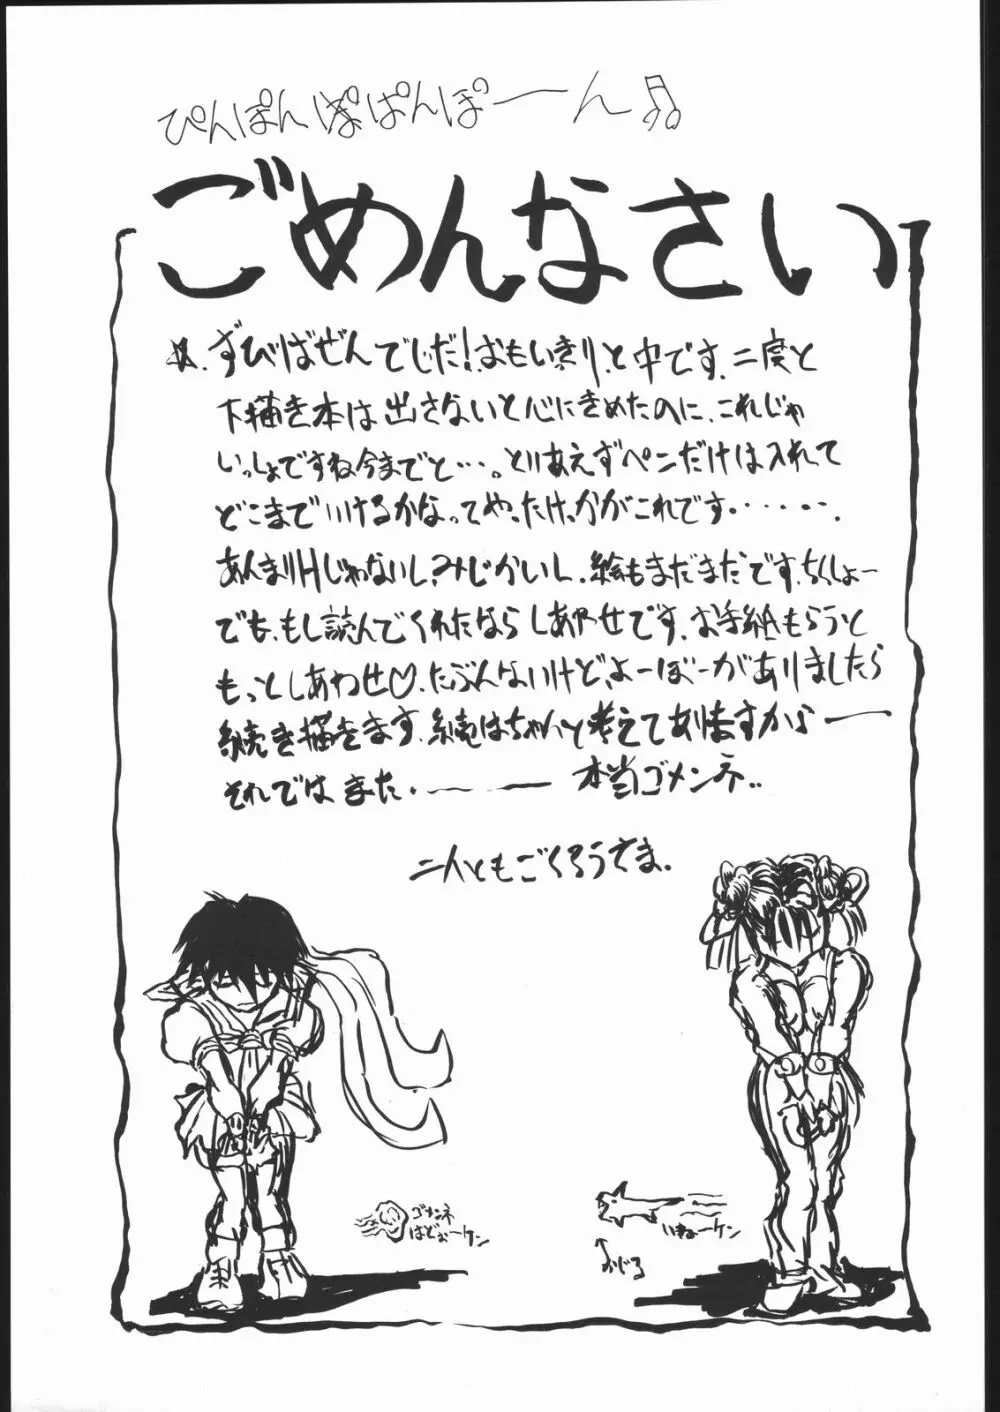 ぴんぽんぱぱんぽーーん♫
ごめんなさい
☆.ずびばぜんでじだ!.おもいきり、と中です.二度と
下描き本は出さないと心にきめたのに、これじゃ
いっしょですね今までと…。とりあえずペンだけは入れて
どこまでいけるかなってや、たけ、かがこれです・・・・・・.
あんまりHじゃないし?みじかいし、絵もまだまだです、ちくしょー
でも、もし読んでくれたなら しあわせです.お手紙もらうと
もっとしあわせ♡.たぶんないけど、よーぼーがありましたら
続き描きます.続はちゃんと考えてありますから ――
それでは また.―― 本当ゴメンネ..
二人ともごくろうさま.
ゴメンネ
はどぉーケン
いきぉーケン
↑
おじる